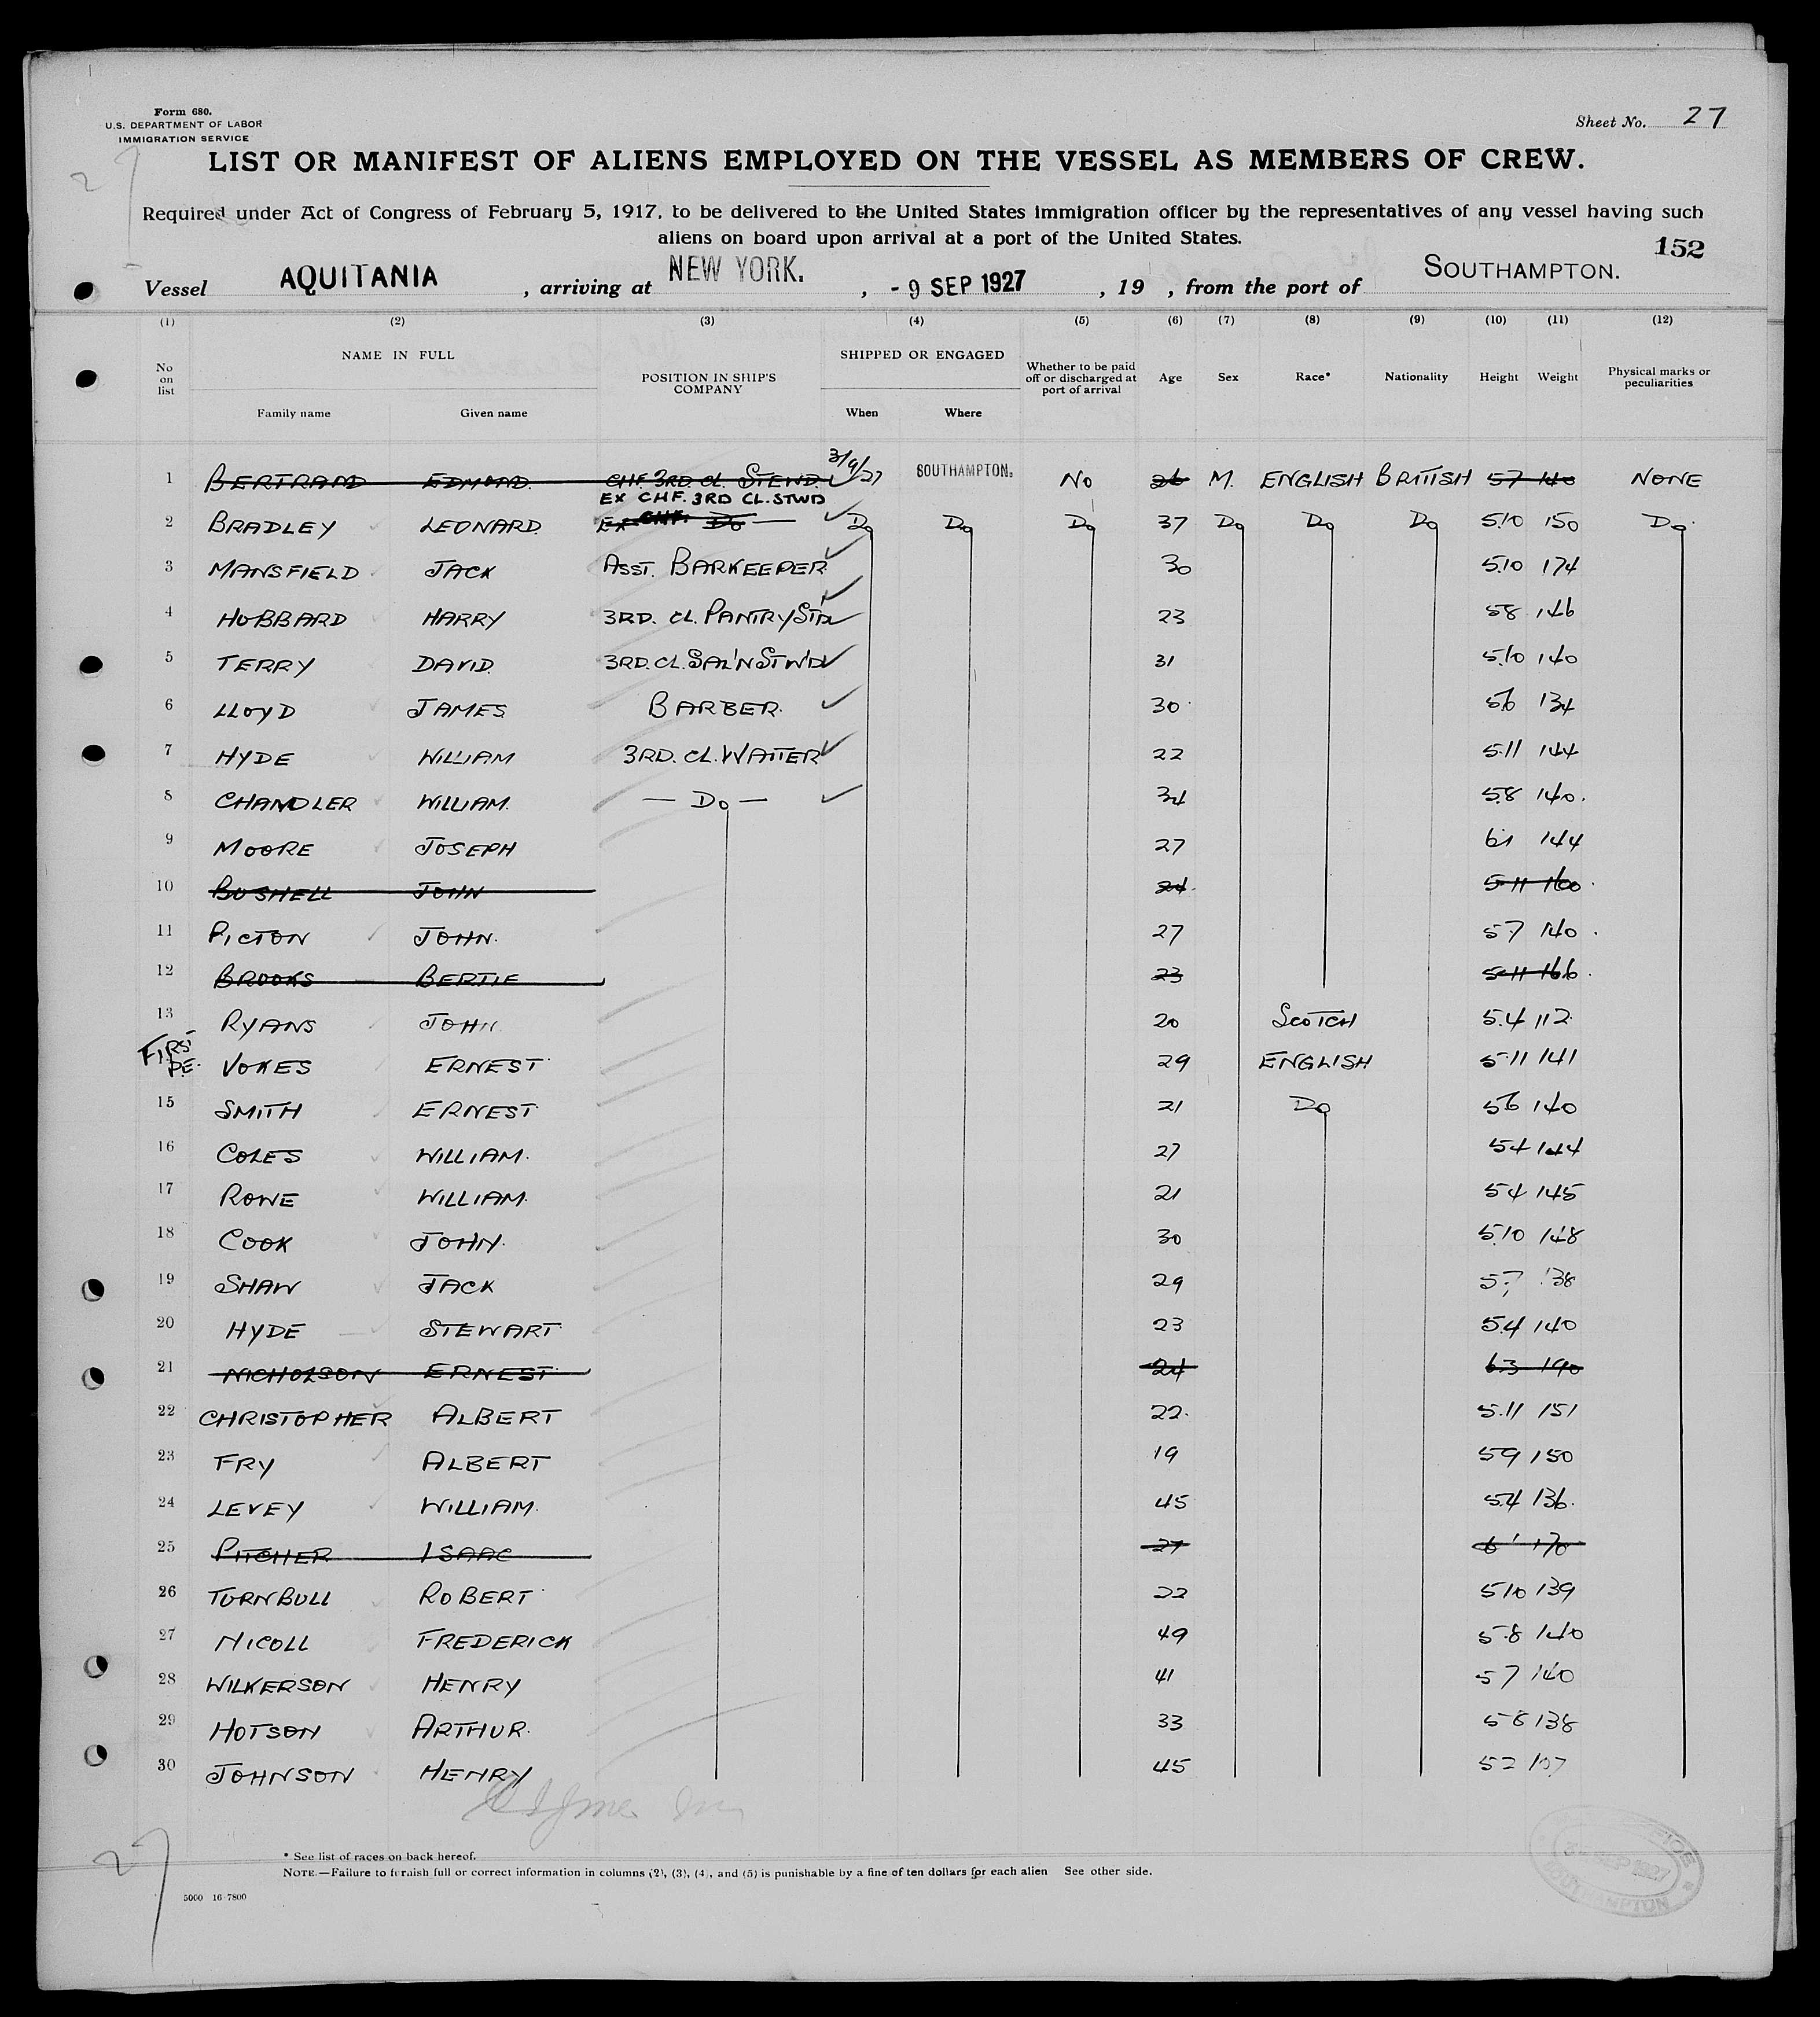 Form 680.
U.S. DEPARTMENT OF LABOR
IMMIGRATION SERVICE
Sheet No. 27
27
LIST OR MANIFEST OF ALIENS EMPLOYED ON THE VESSEL AS MEMBERS OF CREW.
Required under Act of Congress of February 5, 1917, to be delivered to the United States Immigration officer by the representatives of any vessel having such
aliens on board upon arrival at a port of the United States.
152
Vessel AQUITANIA, arriving at NEW YORK., - 9 SEP 1927, 19 , from the port of SOUTHAMPTON.
(1) (2) (3) (4) (5) (6) (7) (8) (9) (10) (11) (12)
No on list NAME IN FULL POSITION IN SHIP'S COMPANY SHIPPED OR ENGAGED Whether to be paid off or discharged at port of arrival Age Sex Race* Nationality Height Weight Physical marks or peculiarities
Family name Given name When Where
1 BERTRAND EDMOND. CHF 3RD CL. STEWD. 3/9/27 SOUTHAMPTON. No 26 M. ENGLISH BRITISH 57 140 NONE
EX CHF. 3RD CL. STWD
2 BRADLEY LEONARD. EX CHF. Do — Do Do Do 37 Do Do Do 5.10 150 Do.
3 MANSFIELD JACK ASST. BARKEEPER 30 5.10 174
4 HUBBARD HARRY 3RD. CL. PANTRY STD 23 58 146
5 TERRY DAVID. 3RD. CL. SAL'N STW'D 31 5.10 140
6 LLOYD JAMES BARBER. 30 56 134
7 HYDE WILLIAM 3RD. CL. WAITER 22 5.11 144
8 CHANDLER WILLIAM. — Do — 34 58 140.
9 MOORE JOSEPH 27 6.1 144
10 BUSHELL JOHN 24 5 11 160
11 PICTON JOHN. 27 57 140
12 BROOKS BERTIE 23 5 11 166
13 RYANS JOHN. 20 SCOTCH 5.4 112
FIRST
PE. VOKES ERNEST 29 ENGLISH 5.11 141
15 SMITH ERNEST 21 Do 56 140
16 COLES WILLIAM. 27 54 144
17 ROWE WILLIAM. 21 54 145
18 COOK JOHN. 30 5.10 148
19 SHAW JACK 29 57 138
20 HYDE STEWART 23 5.4 140
21 NICHOLSON ERNEST 24 6.3 190
22 CHRISTOPHER ALBERT 22. 5.11 151
23 FRY ALBERT 19 59 150
24 LEVEY WILLIAM. 45 5.4 136.
25 PITCHER ISAAC 27 6' 170
26 TURNBULL ROBERT 22 510 139
27 NICOLL FREDERICK 49 5.8 140
28 WILKERSON HENRY 41 57 140
29 HOTSON ARTHUR. 33 58 138
30 JOHNSON HENRY 45 52 107
27
* See list of races on back hereof.
NOTE.—Failure to furnish full or correct information in columns (2), (3), (4), and (5) is punishable by a fine of ten dollars for each alien See other side.
5000 16-7800
SEP 1927
SOUTHAMPTON